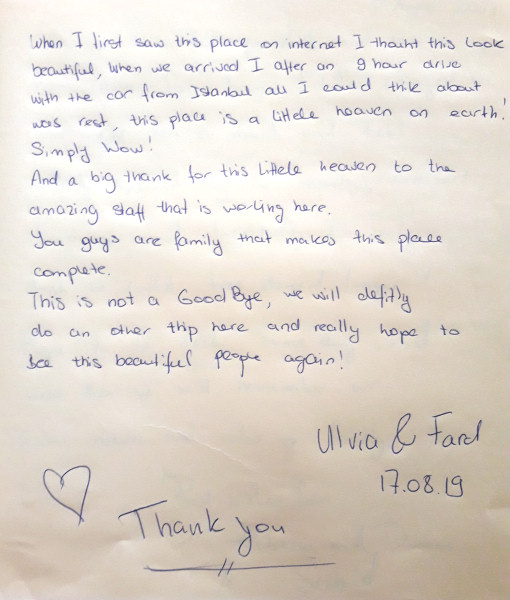 When I first saw this place on internet I thouht this look
beautiful, when we arrived I after an 9 hour drive
with the car from Istanbul all I could thik about
was rest, this place is a littele heaven on earth!
Simply Wow!
And a big thank for this littele heaven to the
amazing staff that is working here.
You guys are family that makes this place
complete.
This is not a GoodBye, we will defitly
do an other thip here and really hope to
see this beautiful people again!
Ulvia & Fard
17.08.19
Thank you